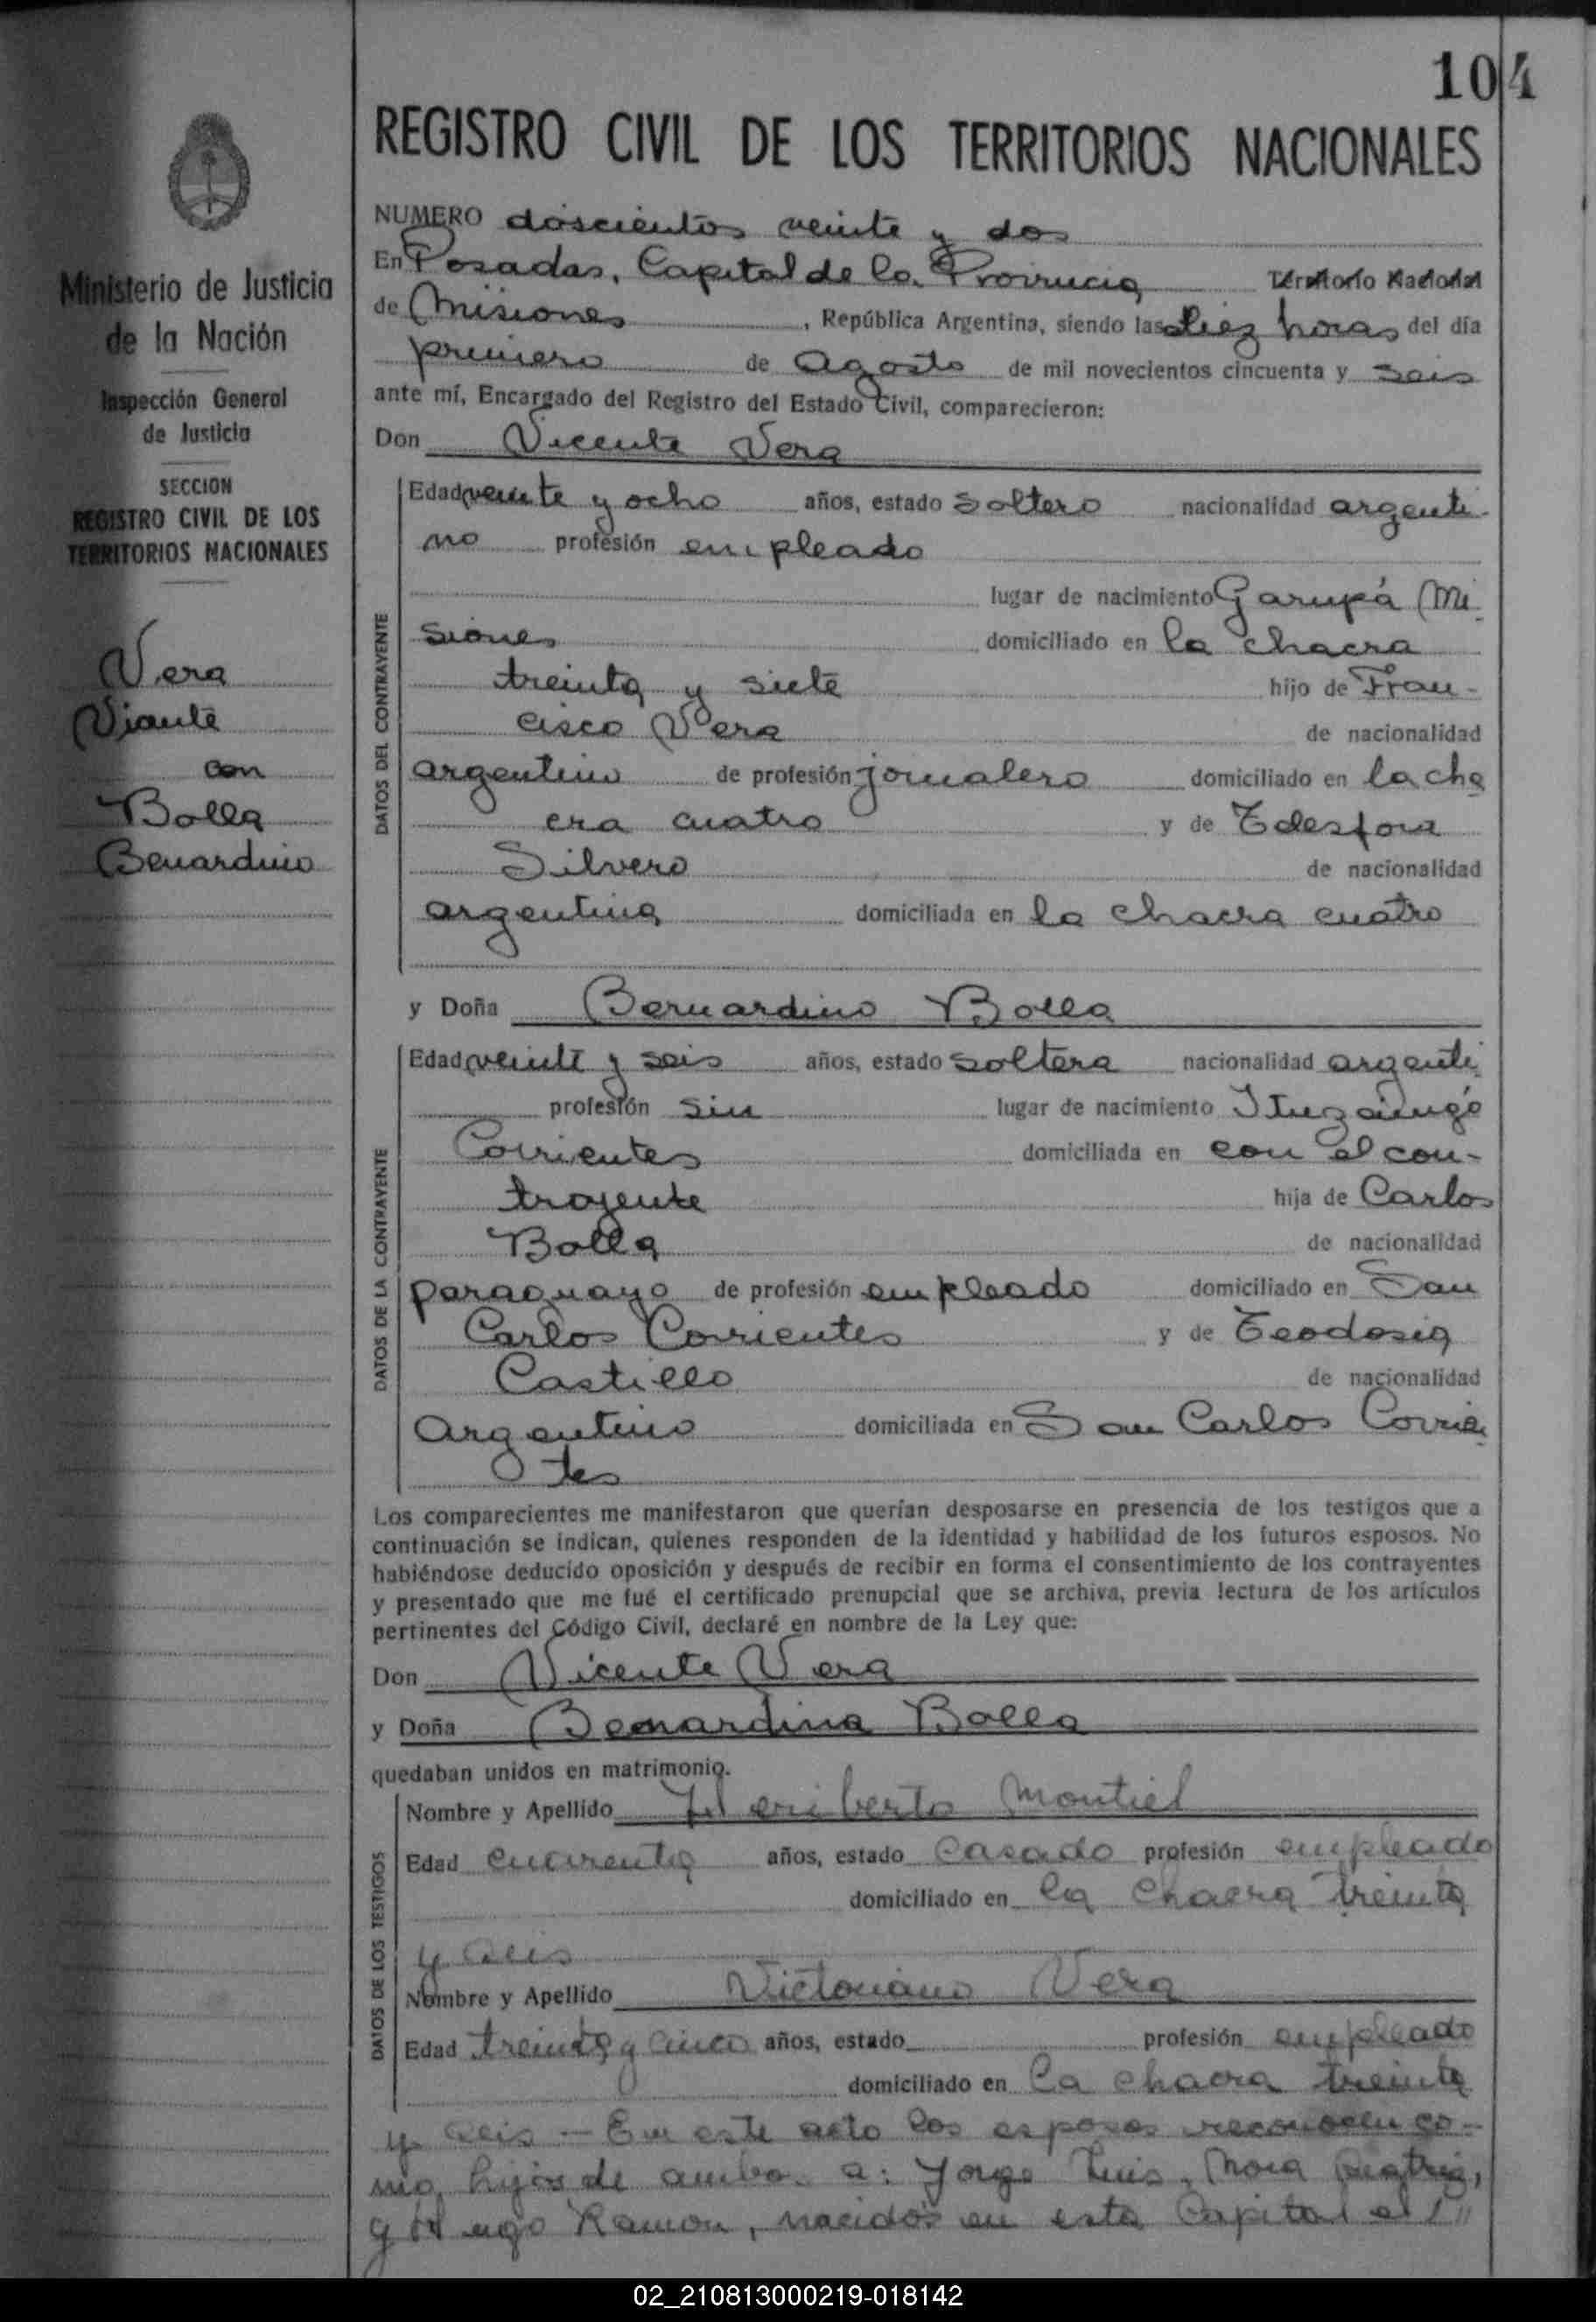 104
REGISTRO CIVIL DE LOS TERRITORIOS NACIONALES
Ministerio de Justicia
de la Nación
Inspección General
de Justicia
SECCION
REGISTRO CIVIL DE LOS
TERRITORIOS NACIONALES
Vera
Viante
con
Bolla
Bernardino
NUMERO doscientos veinte y dos
En Posadas, Capital de la Provincia Territorio Nacional
de Misiones, República Argentina, siendo las diez horas del día
primero de Agosto de mil novecientos cincuenta y seis
ante mí, Encargado del Registro del Estado Civil, comparecieron:
Don Vicente Vera
DATOS DEL CONTRAYENTE
Edad veinte y ocho años, estado soltero nacionalidad argenti-
no profesión empleado
lugar de nacimiento Garupá Mi
siones domiciliado en la chacra
treinta y siete hijo de Fran-
cisco Vera de nacionalidad
argentino de profesión jornalero domiciliado en la cha
cra cuatro y de Telesfora
Silvero de nacionalidad
argentina domiciliada en la chacra cuatro
y Doña Bernardino Bolla
DATOS DE LA CONTRAYENTE
Edad veinte y seis años, estado soltera nacionalidad argenti
profesión sin lugar de nacimiento Ituzaingó
Corrientes domiciliada en con el con-
trayente hija de Carlos
Bolla de nacionalidad
paraguayo de profesión empleado domiciliado en San
Carlos Corrientes y de Teodosia
Castillo de nacionalidad
Argentino domiciliada en San Carlos Corrien
tes
Los comparecientes me manifestaron que querían desposarse en presencia de los testigos que a
continuación se indican, quienes responden de la identidad y habilidad de los futuros esposos. No
habiéndose deducido oposición y después de recibir en forma el consentimiento de los contrayentes
y presentado que me fué el certificado prenupcial que se archiva, previa lectura de los artículos
pertinentes del Código Civil, declaré en nombre de la Ley que:
Don Vicente Vera
y Doña Bernardina Bolla
quedaban unidos en matrimonio.
DATOS DE LOS TESTIGOS
Nombre y Apellido Heriberto Montiel
Edad cuarenta años, estado casado profesión empleado
domiciliado en la chacra treinta
y seis
Nombre y Apellido Victoriano Vera
Edad treinta y cinco años, estado profesión empleado
domiciliado en La chacra treinta
y seis - En este acto los esposos reconocen co-
mo hijos de ambos a: Jorge Luis, Mora Beatriz,
y Hugo Ramon, nacidos en esta Capital el
02_210813000219-018142